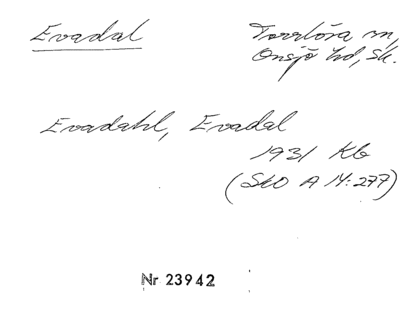 Evadal
Torrlösa sn,
Onsjö hd, Sk.
Evadahl, Evadal
1931 Kb
(SkO A 14:277)
Nr 23942